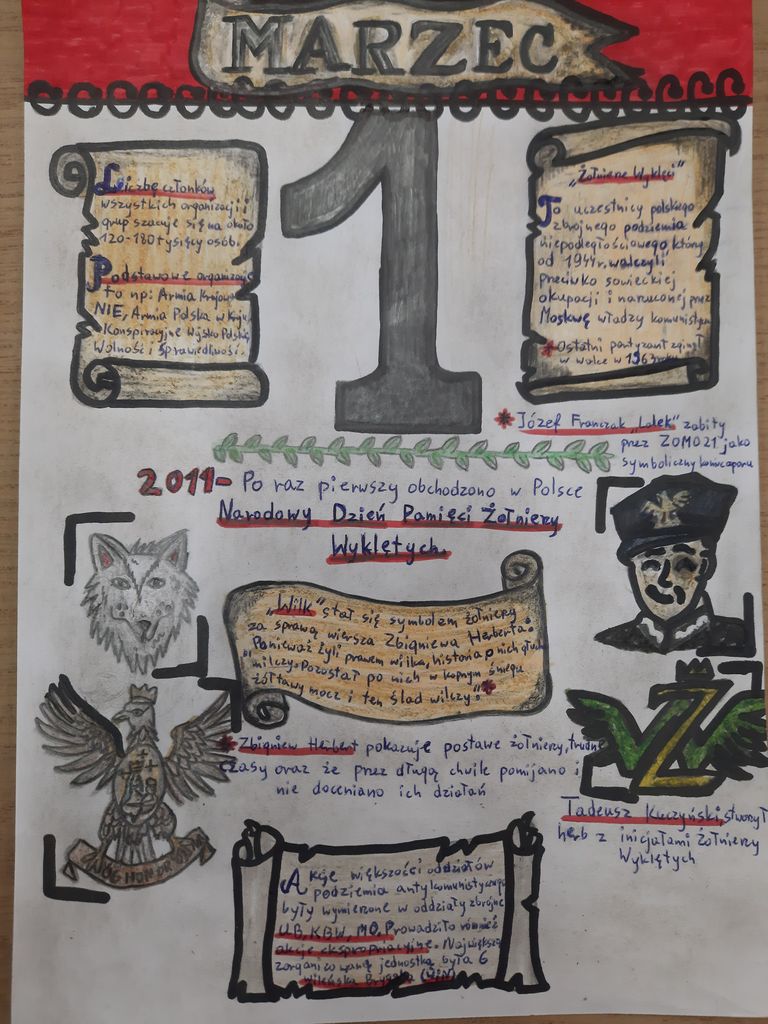 MARZEC
1
Liczbę członków
wszystkich organizacji i
grup szacuje się na około
120-180 tysięcy osób.
Podstawowe organizacje
to np: Armia Krajowa
NIE, Armia Polska w Kraju,
Konspiracyjne Wojsko Polskie,
Wolność i Sprawiedliwość.
"Żołnierze Wyklęci"
To uczestnicy polskiego
zbrojnego podziemia
niepodległościowego, który
od 1944r. walczyli
przeciwko sowieckiej
okupacji i narzuconej przez
Moskwę władzy komunistycz
* Ostatni partyzant zginął
w walce w 1963 roku
* Józef Franczak "Lalek" zabity
przez ZOMO 21 jako
symboliczny koniec oporu
2011- Po raz pierwszy obchodzono w Polsce
Narodowy Dzień Pamięci Żołnierzy
Wyklętych.
"Wilk" stał się symbolem żołnierzy
za sprawą wiersza Zbigniewa Herberta:
"Ponieważ żyli prawem wilka, historia o nich głucho
milczy. Pozostał po nich w kopnym śniegu
żółtawy mocz i ten ślad wilczy." *
* Zbigniew Herbert pokazuje postawę żołnierzy, trudne
czasy oraz że przez długą chwile pomijano i
nie doceniano ich działań
WZ
Tadeusz Kuczyński, stworzył
herb z inicjałami Żołnierzy
Wyklętych
HONOR
Akcje większości oddziałów
podziemia antykomunistycznego
były wymierzone w oddziały zbrojne
UB, KBW, MO. Prowadziło również
akcje ekspropriacyjne. Największą
zorganizowaną jednostką była 6
Wileńska Brygada (WiN)